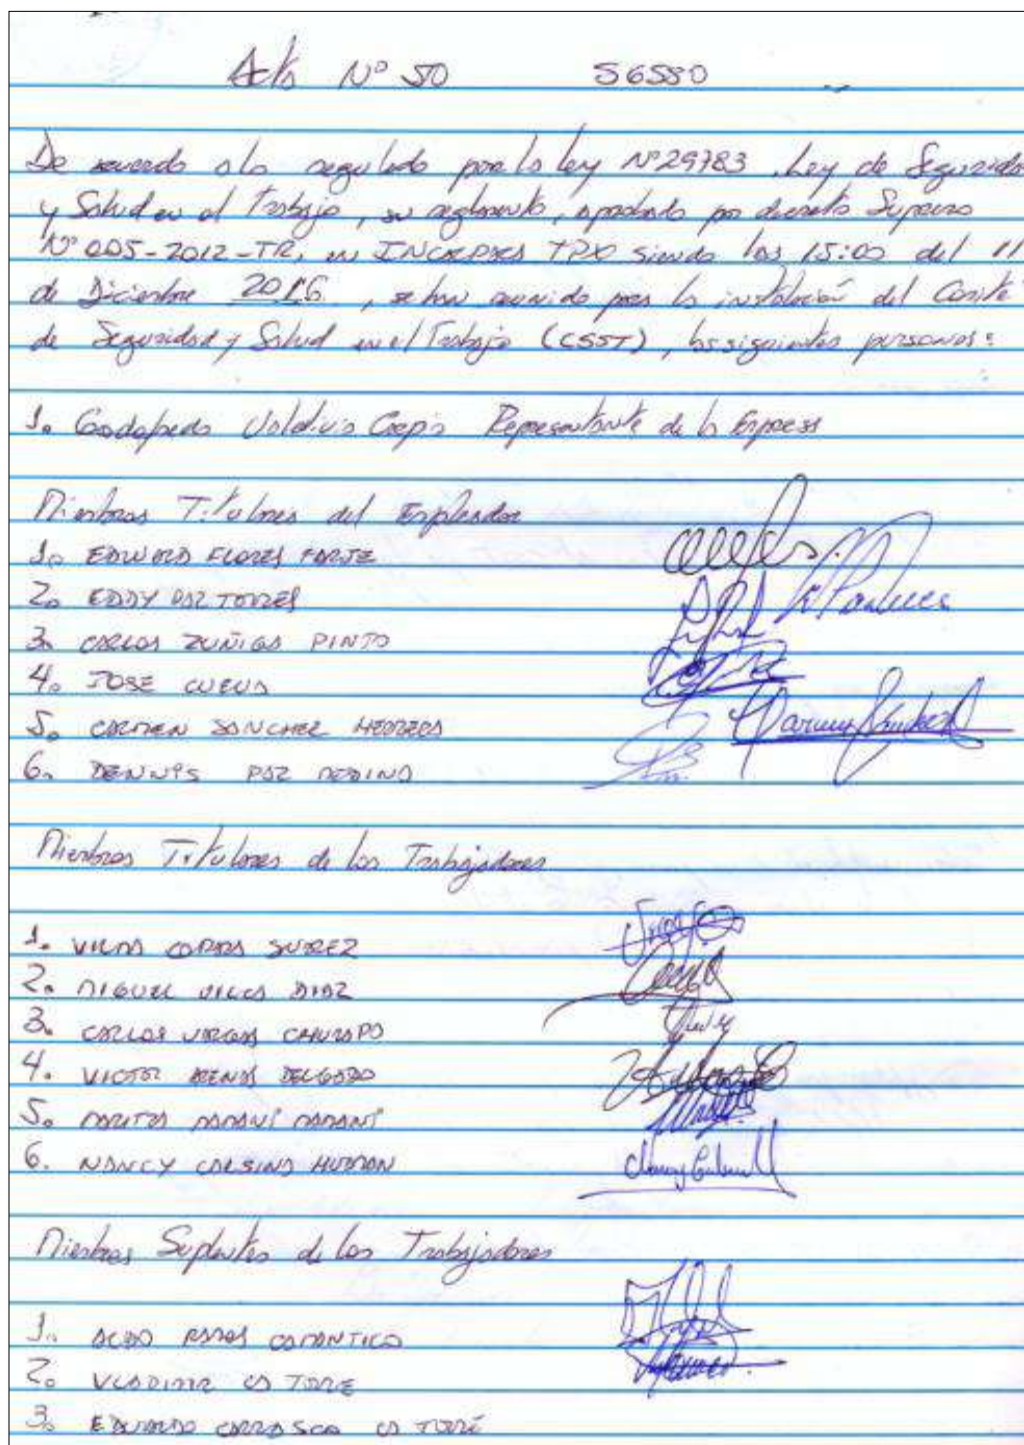 Acta N° 50 56580
De acuerdo a lo regulado por la ley N° 29783, Ley de Seguridad
y Salud en el Trabajo, su reglamento, aprobado por decreto Supremo
N° 005-2012-TR, en TPX siendo las 15:00 del 11
de Diciembre 2016, se han reunido para la instalación del Comité
de Seguridad y Salud en el Trabajo (CSST), las siguientes personas:
1. Representante de la Empresa
Miembros Titulares del Empleador
1. EDWARD FLORES
2. EDDY PAZ TORRES
3. CARLOS ZUÑIGA PINTO
4. JOSE CUEVA
5. CARMEN SANCHEZ HERRERA
6. DENNIS PAZ MEDINA
Miembros Titulares de los Trabajadores
1. VILMA SUAREZ
2. MIGUEL VILCA DIAZ
3. CARLOS VARGAS
4. VICTOR ARENAS DELGADO
5. MARITZA MAMANI MAMANI
6. NANCY HUAMAN
Miembros Suplentes de los Trabajadores
1. ALDO RAMOS
2. VLADIMIR LA TORRE
3. EDUARDO CARRASCO LA TORRE